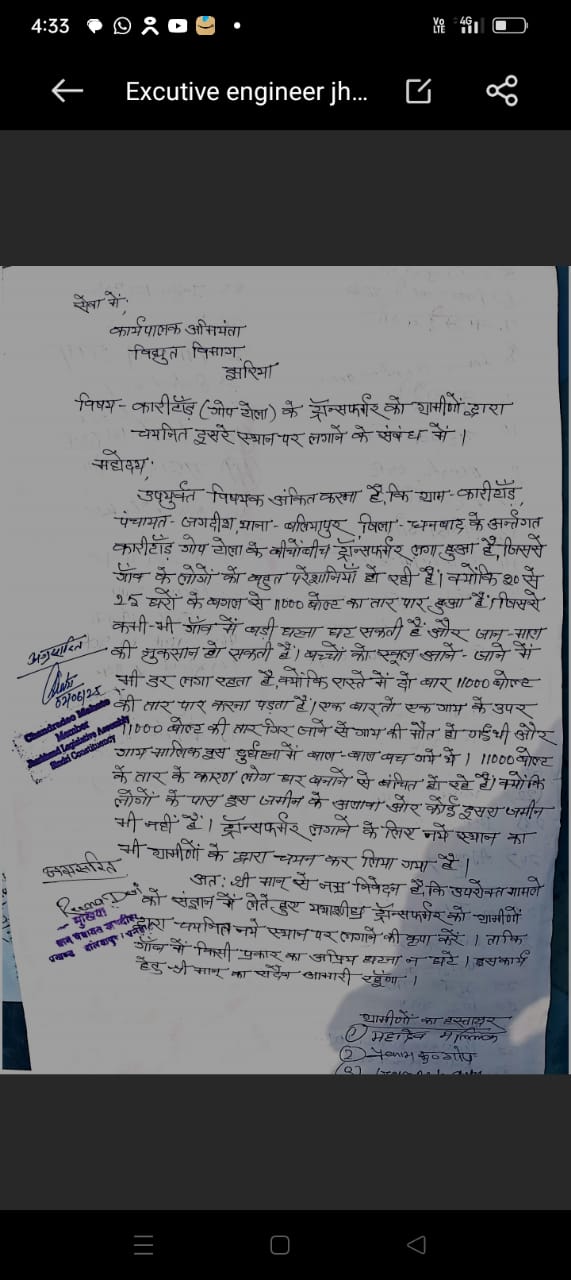 4:33
Vo LTE 4G
Excutive engineer jh...
सेवा में,
कार्यपालक अभियंता
विद्युत विभाग
झरिया
विषय - कारीटाँड़ (गोप टोला) के ट्रॉन्सफर्मर को ग्रामीणों द्वारा
चयनित दुसरे स्थान पर लगाने के संबंध में ।
महोदय,
उपर्युक्त विषयक अंकित करना है, कि ग्राम - कारीटाँड़,
पंचायत - जगदीश, थाना - बलियापुर, जिला - धनबाद के अर्न्तगत
कारीटाँड़ गोप टोला के बीचोंबीच ट्रॉन्सफर्मर लगा हुआ है, जिससे
गाँव के लोगों को बहुत परेशानियाँ हो रही हैं। क्योंकि 20 से
25 घरों के बगल से 11000 वोल्ट का तार पार हुआ है। जिससे
कभी-भी गाँव में बड़ी घटना घट सकती है और जान-माल
की नुकसान हो सकती है। बच्चों को स्कूल आने - जाने में
भी डर लगा रहता है, क्योंकि रास्ते में दो बार 11000 वोल्ट
की तार पार करना पड़ता है। एक बार तो एक गाय के उपर
11000 वोल्ट की तार गिर जाने से गाय की मौत हो गई थी और
गाय मालिक इस दुर्घटना में बाल-बाल बच गये थे। 11000 वोल्ट
के तार के कारण लोग घर बनाने से बंचित हो रहे हैं। क्योंकि
लोगों के पास इस जमीन के अलावा और कोई दुसरा जमीन
भी नहीं है। ट्रॉन्सफर्मर लगाने के लिए नये स्थान का
भी ग्रामीणों के द्वारा चयन कर लिया गया है।
अतः श्री मान् से नम्र निवेदन है, कि उपरोक्त मामले
को संज्ञान में लेते हुए यथाशीघ्र ट्रॉन्सफर्मर को ग्रामीणों
द्वारा चयनित नये स्थान पर लगाने की कृपा करें। ताकि
गाँव में किसी प्रकार का अप्रिय घटना न घटे। इस कार्य
हेतु श्री मान् का सदैव आभारी रहूँगा।
अग्रसारित
02/06/25
Chandradeo Mahato
Member
Jharkhand Legislative Assembly
Sindri Constituency
अग्रसारित
Reena Devi
मुखिया
ग्राम पंचायत जगदीश
ग्रामीणों का हस्ताक्षर
(1) महादेव मल्लिक
(2)
(3)